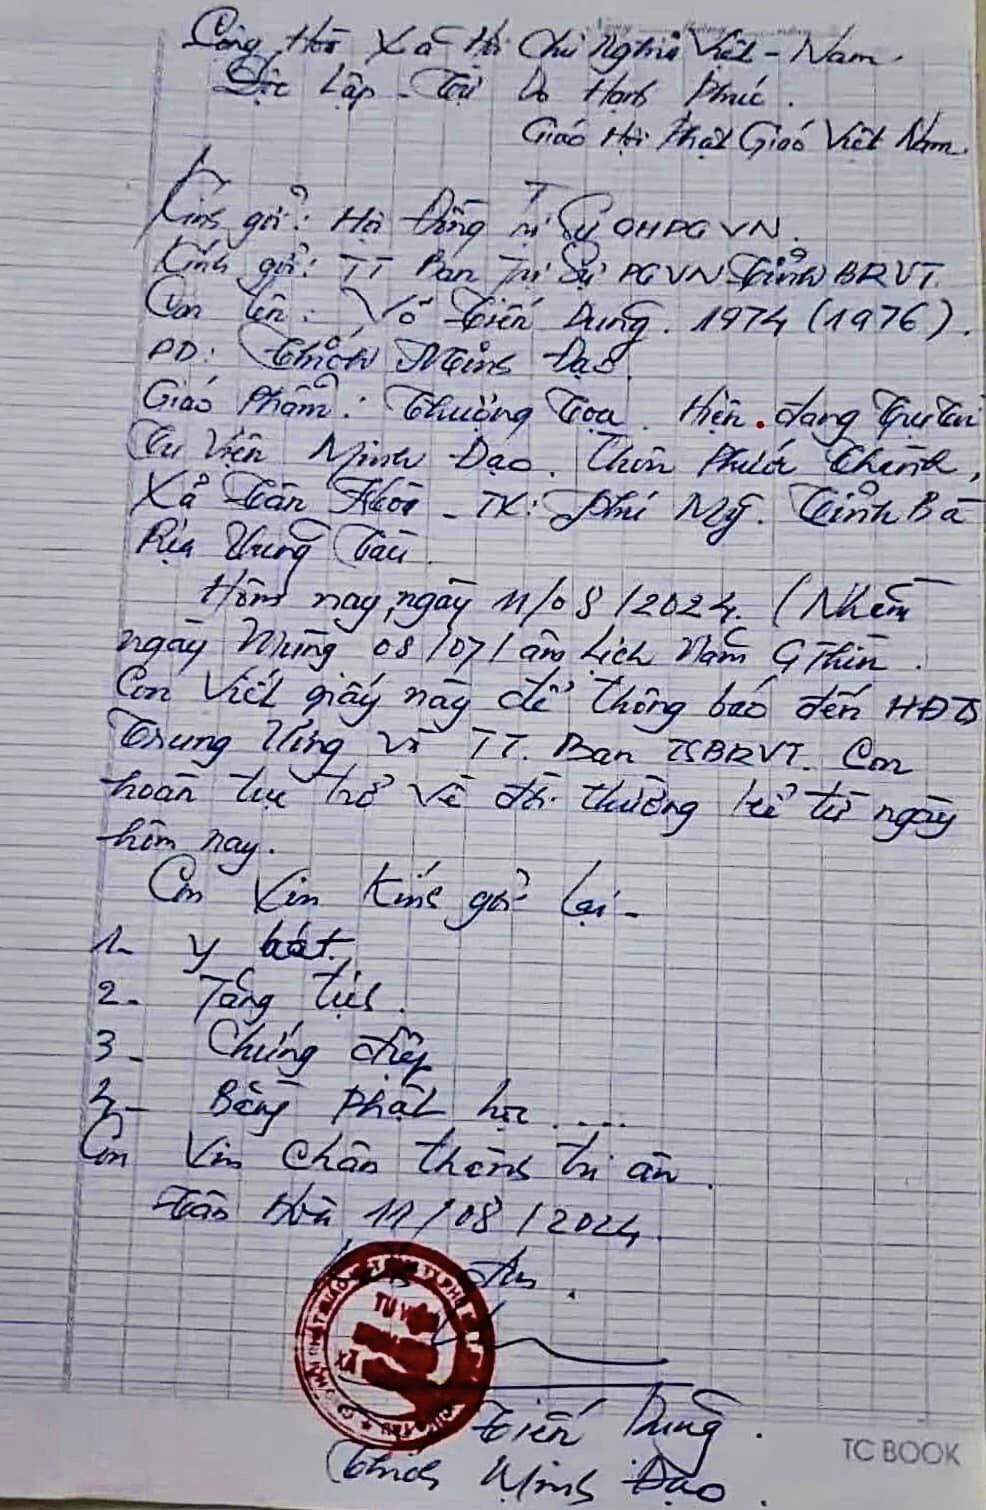 Cộng Hòa Xã Hội Chủ Nghĩa Việt - Nam.
Độc Lập - Tự Do Hạnh Phúc.
Giáo Hội Phật Giáo Việt Nam.
Kính gởi: Hội Đồng Trị Sự GHPGVN.
Kính gởi: TT Ban Trị Sự PGVN Tỉnh BRVT.
Con tên: Võ Tiến Dũng. 1974 (1976).
PD: Thích Minh Đạo.
Giáo Phẩm: Thượng Tọa. Hiện đang Trụ Trì
Tu Viện Minh Đạo. Thôn Phước Thành,
Xã Tân Hòa - TX: Phú Mỹ. Tỉnh Bà
Rịa Vũng Tàu.
Hôm nay, ngày 11/08/2024. (Nhằm
ngày Mùng 08/07/âm lịch Năm GThìn.
Con viết giấy này để thông báo đến HĐTS
Trung Ương và TT. Ban TSBRVT. Con
hoàn tục trở về đời thường kể từ ngày
hôm nay.
Con Xin Kính gởi lại -
1- y bát.
2- Tăng tịch.
3- Chứng điệp
4- Bằng Phật học .....
Con Xin chân thành tri ân.
Tân Hòa 11/08/2024.
TU VIỆN
XÃ
Tiến Dũng.
Thích Minh Đạo.
TC BOOK